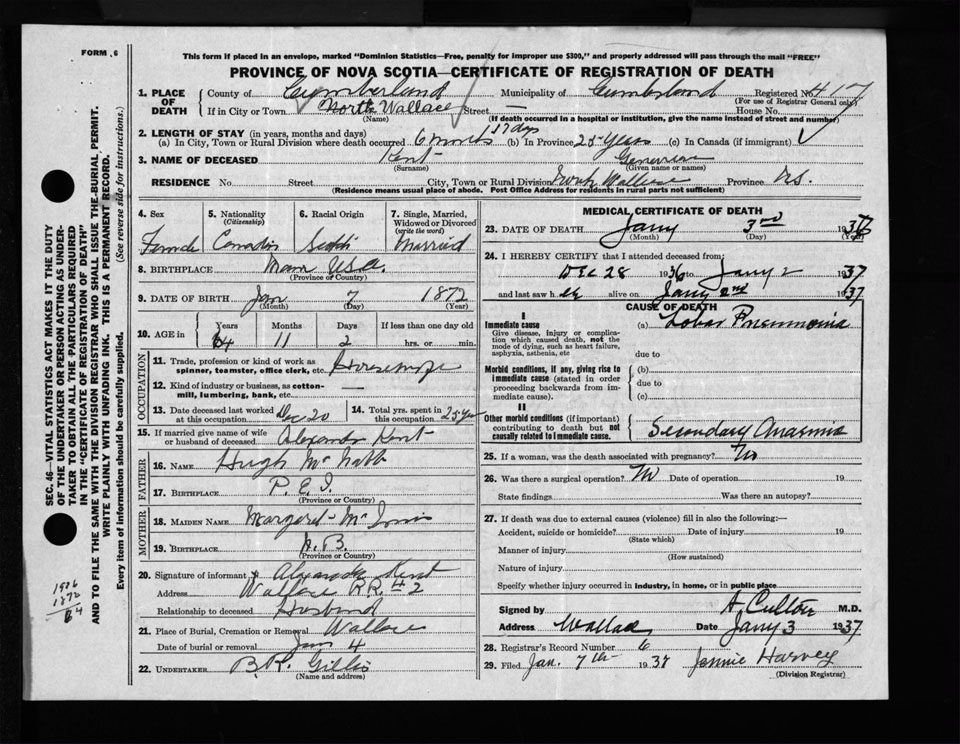 FORM 6
This form if placed in an envelope, marked "Dominion Statistics—Free, penalty for improper use $300," and properly addressed will pass through the mail "FREE"
PROVINCE OF NOVA SCOTIA—CERTIFICATE OF REGISTRATION OF DEATH
1. PLACE OF DEATH
County of Cumberland Municipality of Cumberland Registered No. 417
(For use of Registrar General only)
If in City or Town North Wallace Street — House No.
(Name) (If death occurred in a hospital or institution, give the name instead of street and number)
2. LENGTH OF STAY (in years, months and days)
(a) In City, Town or Rural Division where death occurred 6 months 17 days (b) In Province 25 Years (c) In Canada (if immigrant)
3. NAME OF DECEASED Kent
(Surname) (Given name or names)
RESIDENCE No. Street City, Town or Rural Division North Wallace Province N.S.
(Residence means usual place of abode. Post Office Address for residents in rural parts not sufficient)
4. Sex Female
5. Nationality (Citizenship) Canadian
6. Racial Origin
7. Single, Married, Widowed or Divorced (write the word) Married
8. BIRTHPLACE U.S.A.
(Province or Country)
9. DATE OF BIRTH Jan 7 1872
(Month) (Day) (Year)
10. AGE in Years Months Days If less than one day old
64 11 2 hrs. or min.
OCCUPATION
11. Trade, profession or kind of work as spinner, teamster, office clerk, etc. Housewife
12. Kind of industry or business, as cotton-mill, lumbering, bank, etc. —
13. Date deceased last worked at this occupation Dec 20
14. Total yrs. spent in this occupation 25 yrs
15. If married give name of wife or husband of deceased Alexander Kent
FATHER
16. NAME Hugh McNabb
17. BIRTHPLACE P.E.I.
(Province or Country)
MOTHER
18. MAIDEN NAME Margaret McInnis
19. BIRTHPLACE
(Province or Country)
20. Signature of informant Alexander Kent
Address Wallace RR # 2
Relationship to deceased Husband
21. Place of Burial, Cremation or Removal Wallace
Date of burial or removal Jan 4
22. UNDERTAKER B.R. Gillis
(Name and address)
MEDICAL CERTIFICATE OF DEATH
23. DATE OF DEATH Jany 3rd 1937
(Month) (Day) (Year)
24. I HEREBY CERTIFY that I attended deceased from:
Dec 28 1936 to Jany 2 1937
and last saw h er alive on Jany 2nd 1937
CAUSE OF DEATH
I
Immediate cause
Give disease, injury or complication which caused death, not the mode of dying, such as heart failure, asphyxia, asthenia, etc
(a) Lobar Pneumonia
due to
Morbid conditions, if any, giving rise to immediate cause (stated in order proceeding backwards from immediate cause).
(b)
due to
(c)
II
Other morbid conditions (if important) contributing to death but not causally related to immediate cause.
Secondary Anaemia
25. If a woman, was the death associated with pregnancy? No
26. Was there a surgical operation? No Date of operation 19
State findings Was there an autopsy?
27. If death was due to external causes (violence) fill in also the following:—
Accident, suicide or homicide? Date of injury 19
(State which)
Manner of injury
(How sustained)
Nature of injury
Specify whether injury occurred in industry, in home, or in public place
Signed by M.D.
Address Wallace Date Jany 3 1937
28. Registrar's Record Number 6
29. Filed Jan. 7th 1937 Jennie Harvey
(Division Registrar)
SEC. 46—VITAL STATISTICS ACT MAKES IT THE DUTY
OF THE UNDERTAKER OR PERSON ACTING AS UNDER-
TAKER TO OBTAIN ALL THE PARTICULARS REQUIRED
IN THE "CERTIFICATE OF REGISTRATION OF DEATH"
AND TO FILE THE SAME WITH THE DIVISION REGISTRAR WHO SHALL ISSUE THE BURIAL PERMIT.
WRITE PLAINLY WITH UNFADING INK. THIS IS A PERMANENT RECORD.
Every item of information should be carefully supplied. (See reverse side for instructions.)
1936
1872
64